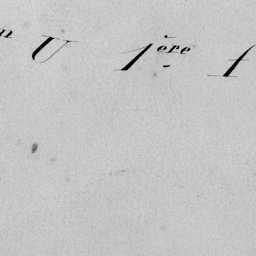 n U 1ère f